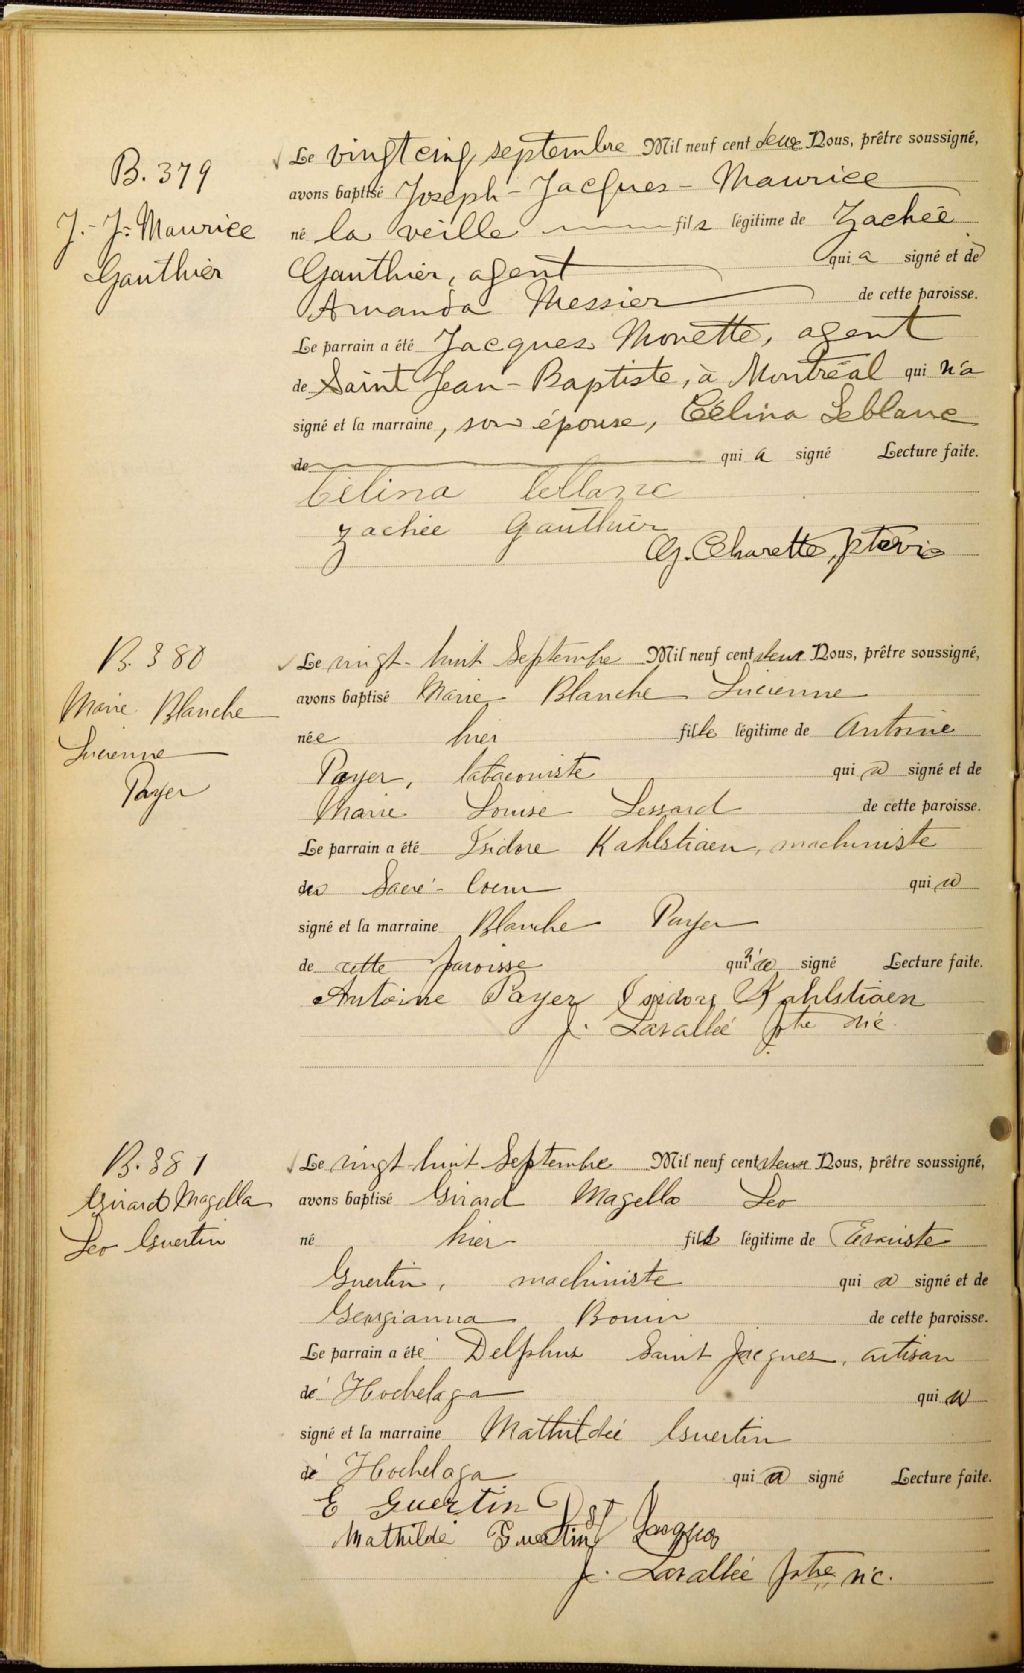 B. 379
J.-J.-Maurice
Gauthier
Le vingt cinq septembre Mil neuf cent deux Nous, prêtre soussigné,
avons baptisé Joseph-Jacques-Maurice
né la veille fils légitime de Zachée
Gauthier, agent qui a signé et de
Amanda Messier de cette paroisse.
Le parrain a été Jacques Monette, agent
de Saint Jean-Baptiste, à Montréal qui n'a
signé et la marraine, son épouse, Célina Leblanc
de qui a signé Lecture faite.
Célina leblanc
Zachée Gauthier
Charette, ptre vic
B. 380
Marie Blanche
Lucienne
Payer
Le vingt-huit Septembre Mil neuf cent deux Nous, prêtre soussigné,
avons baptisé Marie Blanche Lucienne
née hier fille légitime de Antoine
Payer, tabaconiste qui a signé et de
Marie Louise Lessard de cette paroisse.
Le parrain a été Isidore Kahlstiaen, machiniste
du Sacré-Coeur qui a
signé et la marraine Blanche Payer
de cette paroisse qui n'a signé Lecture faite.
Antoine Payer Isidore Kahlstiaen
J. Lavallée ptre vic.
B. 381
Girard Magella
Leo Guertin
Le vingt-huit Septembre Mil neuf cent deux Nous, prêtre soussigné,
avons baptisé Girard Magella Leo
né hier fils légitime de
Guertin, machiniste qui a signé et de
Georgianna Bouin de cette paroisse.
Le parrain a été Delphus Saint Jacques, artisan
de Hochelaga qui a
signé et la marraine Mathildée Guertin
de Hochelaga qui a signé Lecture faite.
E Guertin D St Jacques
Mathildé Guertin
J. Lavallée ptre vic.